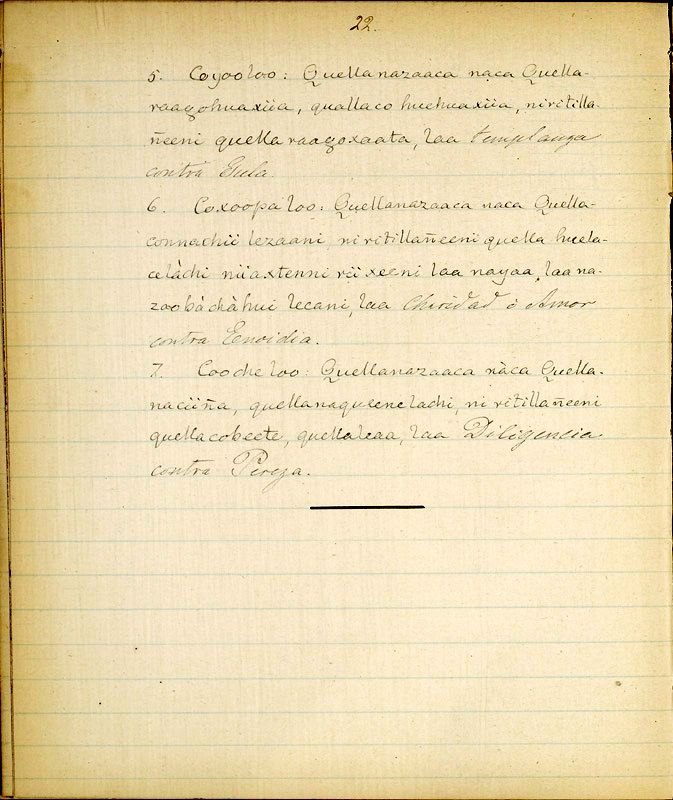 22.
5. Coyooloo: Quellanazaaca naca Quella-
raagohuaxiia, quallaco huehuaxiia, niritilla-
ñeeni quella raagoxaata, laa templanza
contra Gula.
6. Coxoopa loo: Quellanazaaca naca Quella-
connachii lezaani, ni ritillañeeni quella huela-
celàchi niiaxtenni rii xeeni laa nayaa, laa na-
zoobàchàhui lecani, laa Charidad ò Amor
contra Envidia.
7. Coocheloo: Quellanazaaca nàca Quella-
naciiña, quellanaqueenelachi, ni ritillañeeni
quellacobeete, quellaleaa, laa Diligencia
contra Pereza.